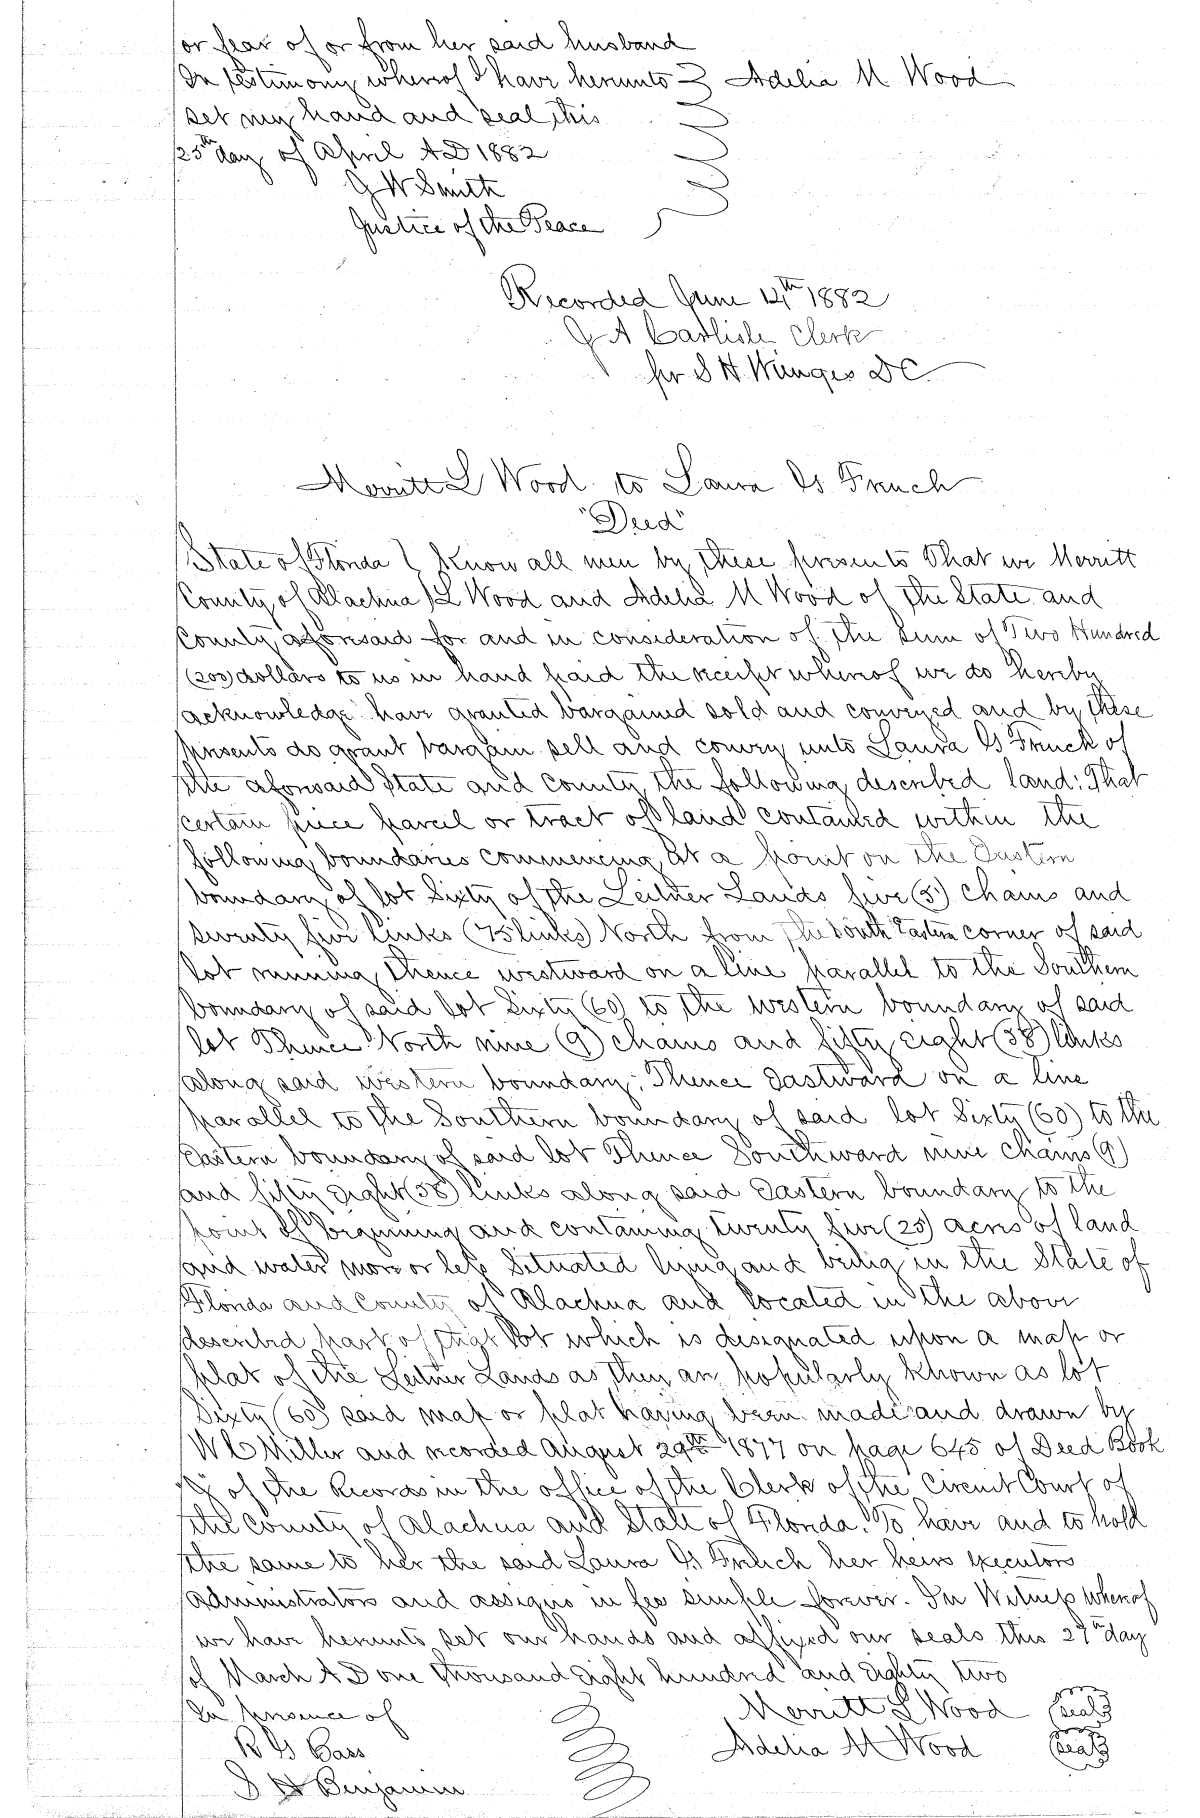 or fear of or from her said husband
In testimony whereof I have herunto Adelia M Wood
set my hand and seal this
25th day of April AD 1882
G W Smith
Justice of the Peace
Recorded June 14th 1882
J A Carlisle Clerk
pr S H Wienges DC
Merritt L Wood to Laura G French
"Deed"
State of Florida } Know all men by these presents That we Merritt
County of Alachua } L Wood and Adelia M Wood of the State and
County aforesaid for and in consideration of the sum of Two Hundred
(200) dollars to us in hand paid the receipt whereof we do hereby
acknowledge have granted bargained sold and conveyed and by these
presents do grant bargain sell and convey unto Laura G French of
the aforesaid State and County the following described land: That
certain piece parcel or tract of land contained within the
following boundaries commencing at a point on the Eastern
boundary of lot Sixty of the Leitner Lands five (5) chains and
seventy five links (75 links) North from the South Eastern corner of said
lot running thence westward on a line parallel to the Southern
boundary of said lot Sixty (60) to the western boundary of said
lot Thence North nine (9) chains and fifty eight (58) links
along said western boundary; Thence Eastward on a line
parallel to the Southern boundary of said lot Sixty (60) to the
Eastern boundary of said lot Thence Southward nine chains (9)
and fifty eight (58) links along said Eastern boundary to the
point of beginning and containing twenty five (25) acres of land
and water more or less Situated lying and being in the State of
Florida and County of Alachua and located in the above
described part of that lot which is designated upon a map or
plat of the Leitner Lands as they are popularly known as lot
Sixty (60) said map or plat having been made and drawn by
W C Miller and recorded August 29th 1877 on page 645 of Deed Book
of the Records in the office of the Clerk of the Circuit Court of
the County of Alachua and State of Florida. To have and to hold
the same to her the said Laura G French her heirs executors
administrators and assigns in fee simple forever. In Witness whereof
we have herunto set our hands and affixed our seals this 27th day
of March AD one thousand Eight hundred and Eighty two
In presence of Merritt L Wood (seal)
R G Cass Adelia M Wood (seal)
S H Benjamin